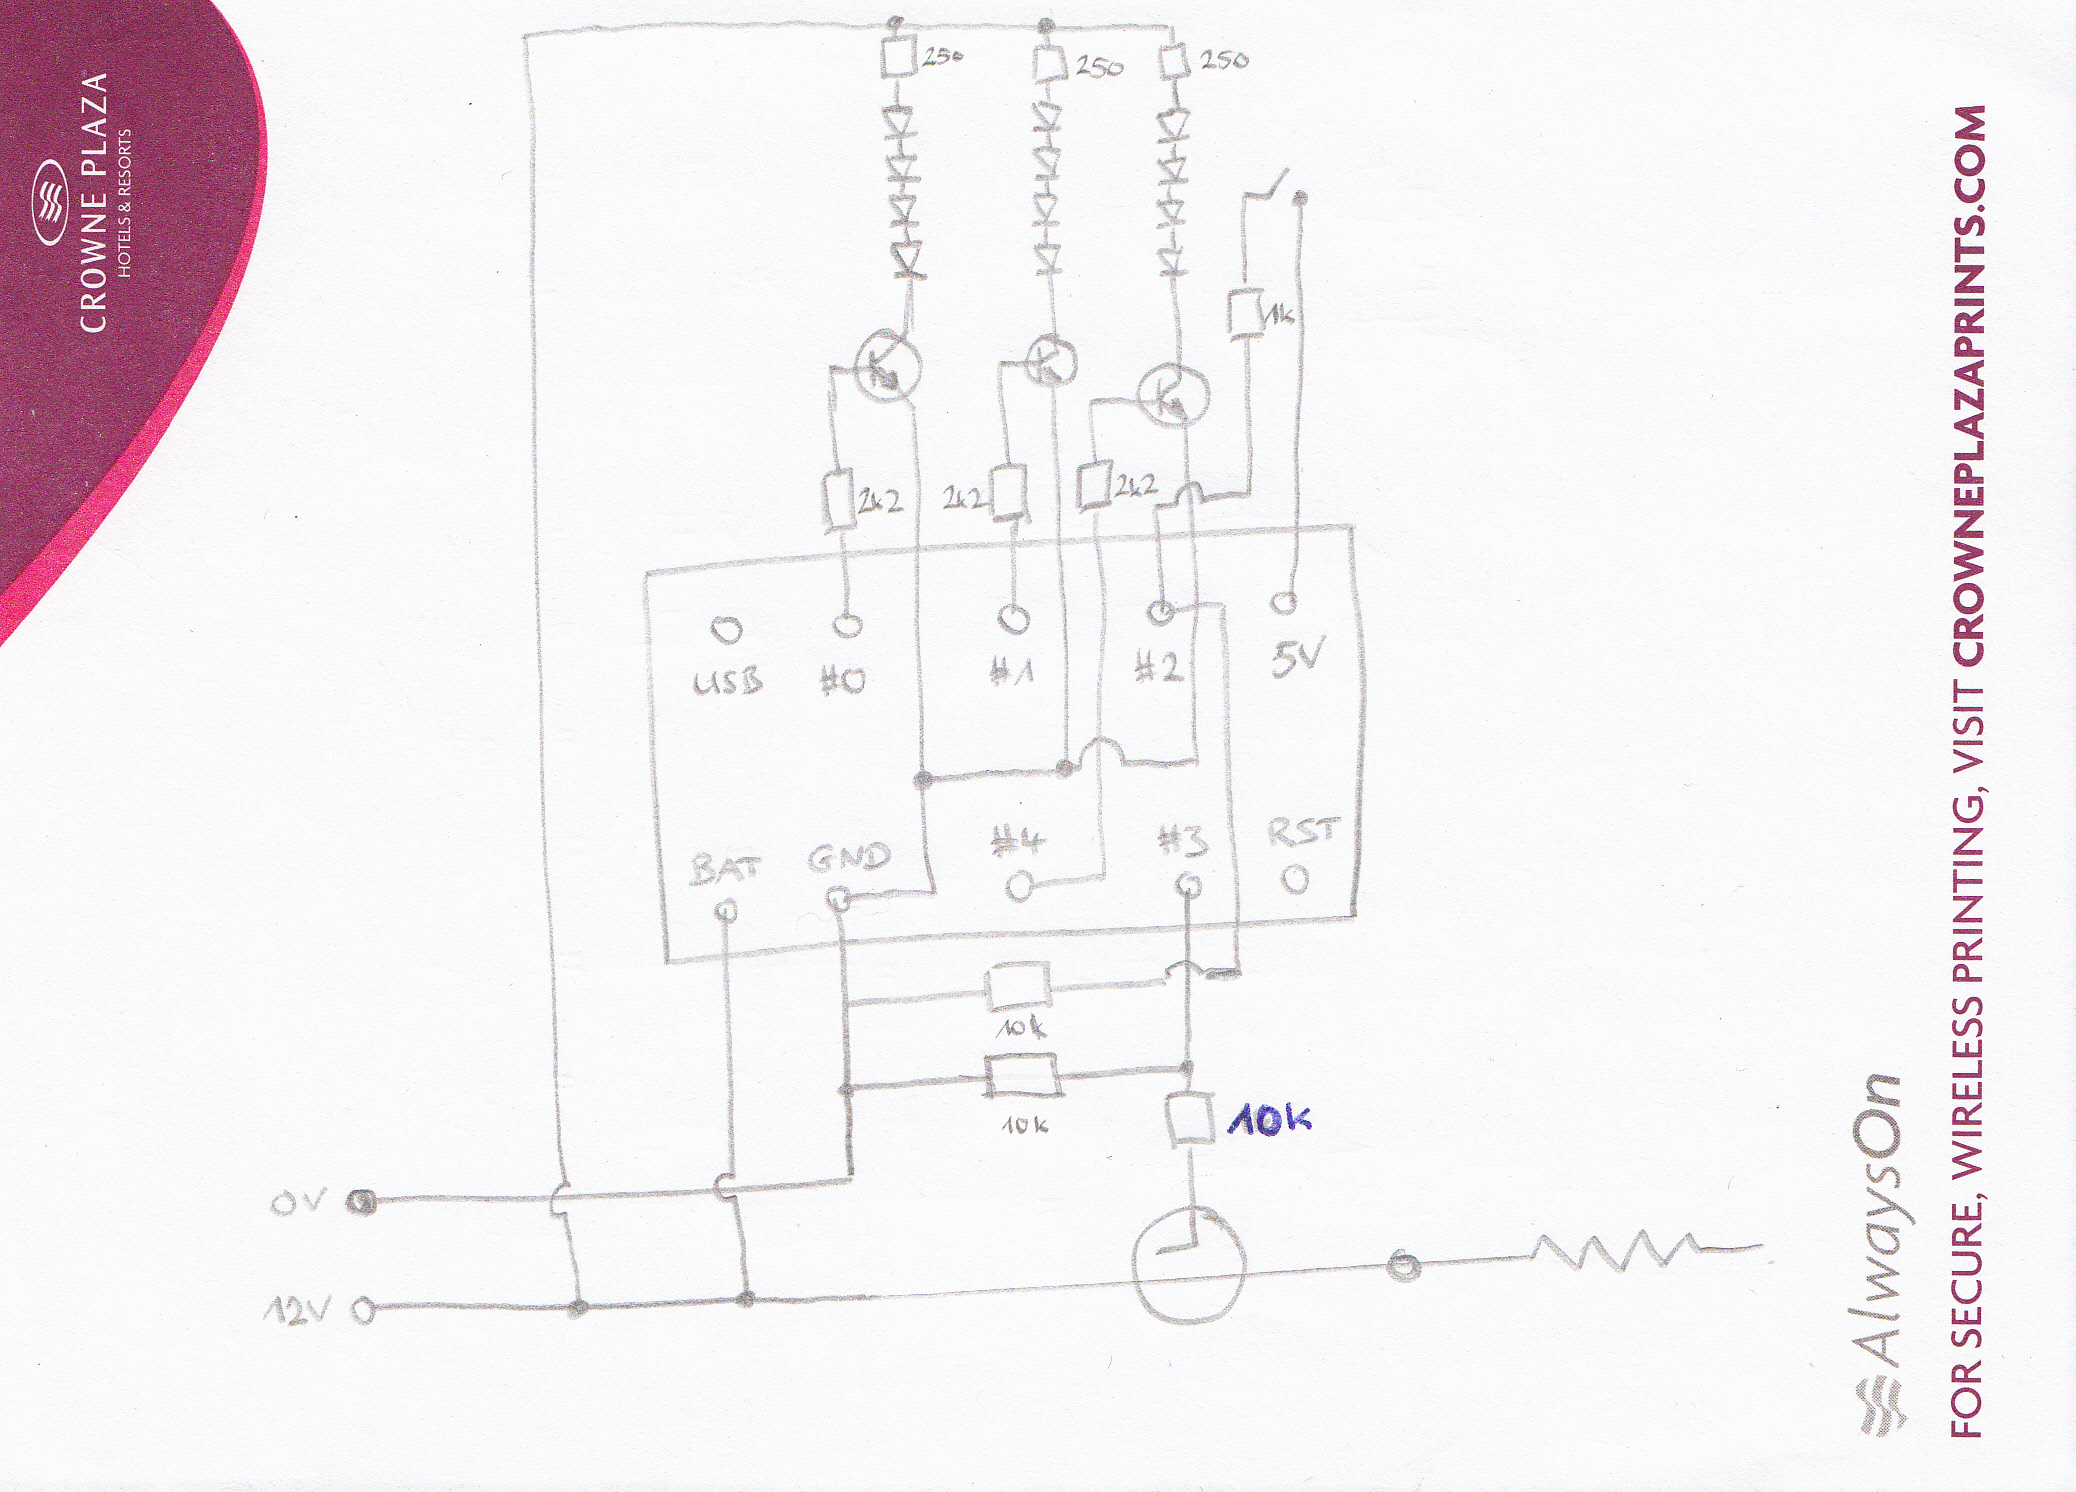 CROWNE PLAZA
HOTELS & RESORTS
250
250
250
1k
2k2
2k2
2k2
USB
#0
#1
#2
5V
BAT
GND
#4
#3
RST
10k
10k
10k
0V
12V
AlwaysOn
FOR SECURE, WIRELESS PRINTING, VISIT CROWNEPLAZAPRINTS.COM